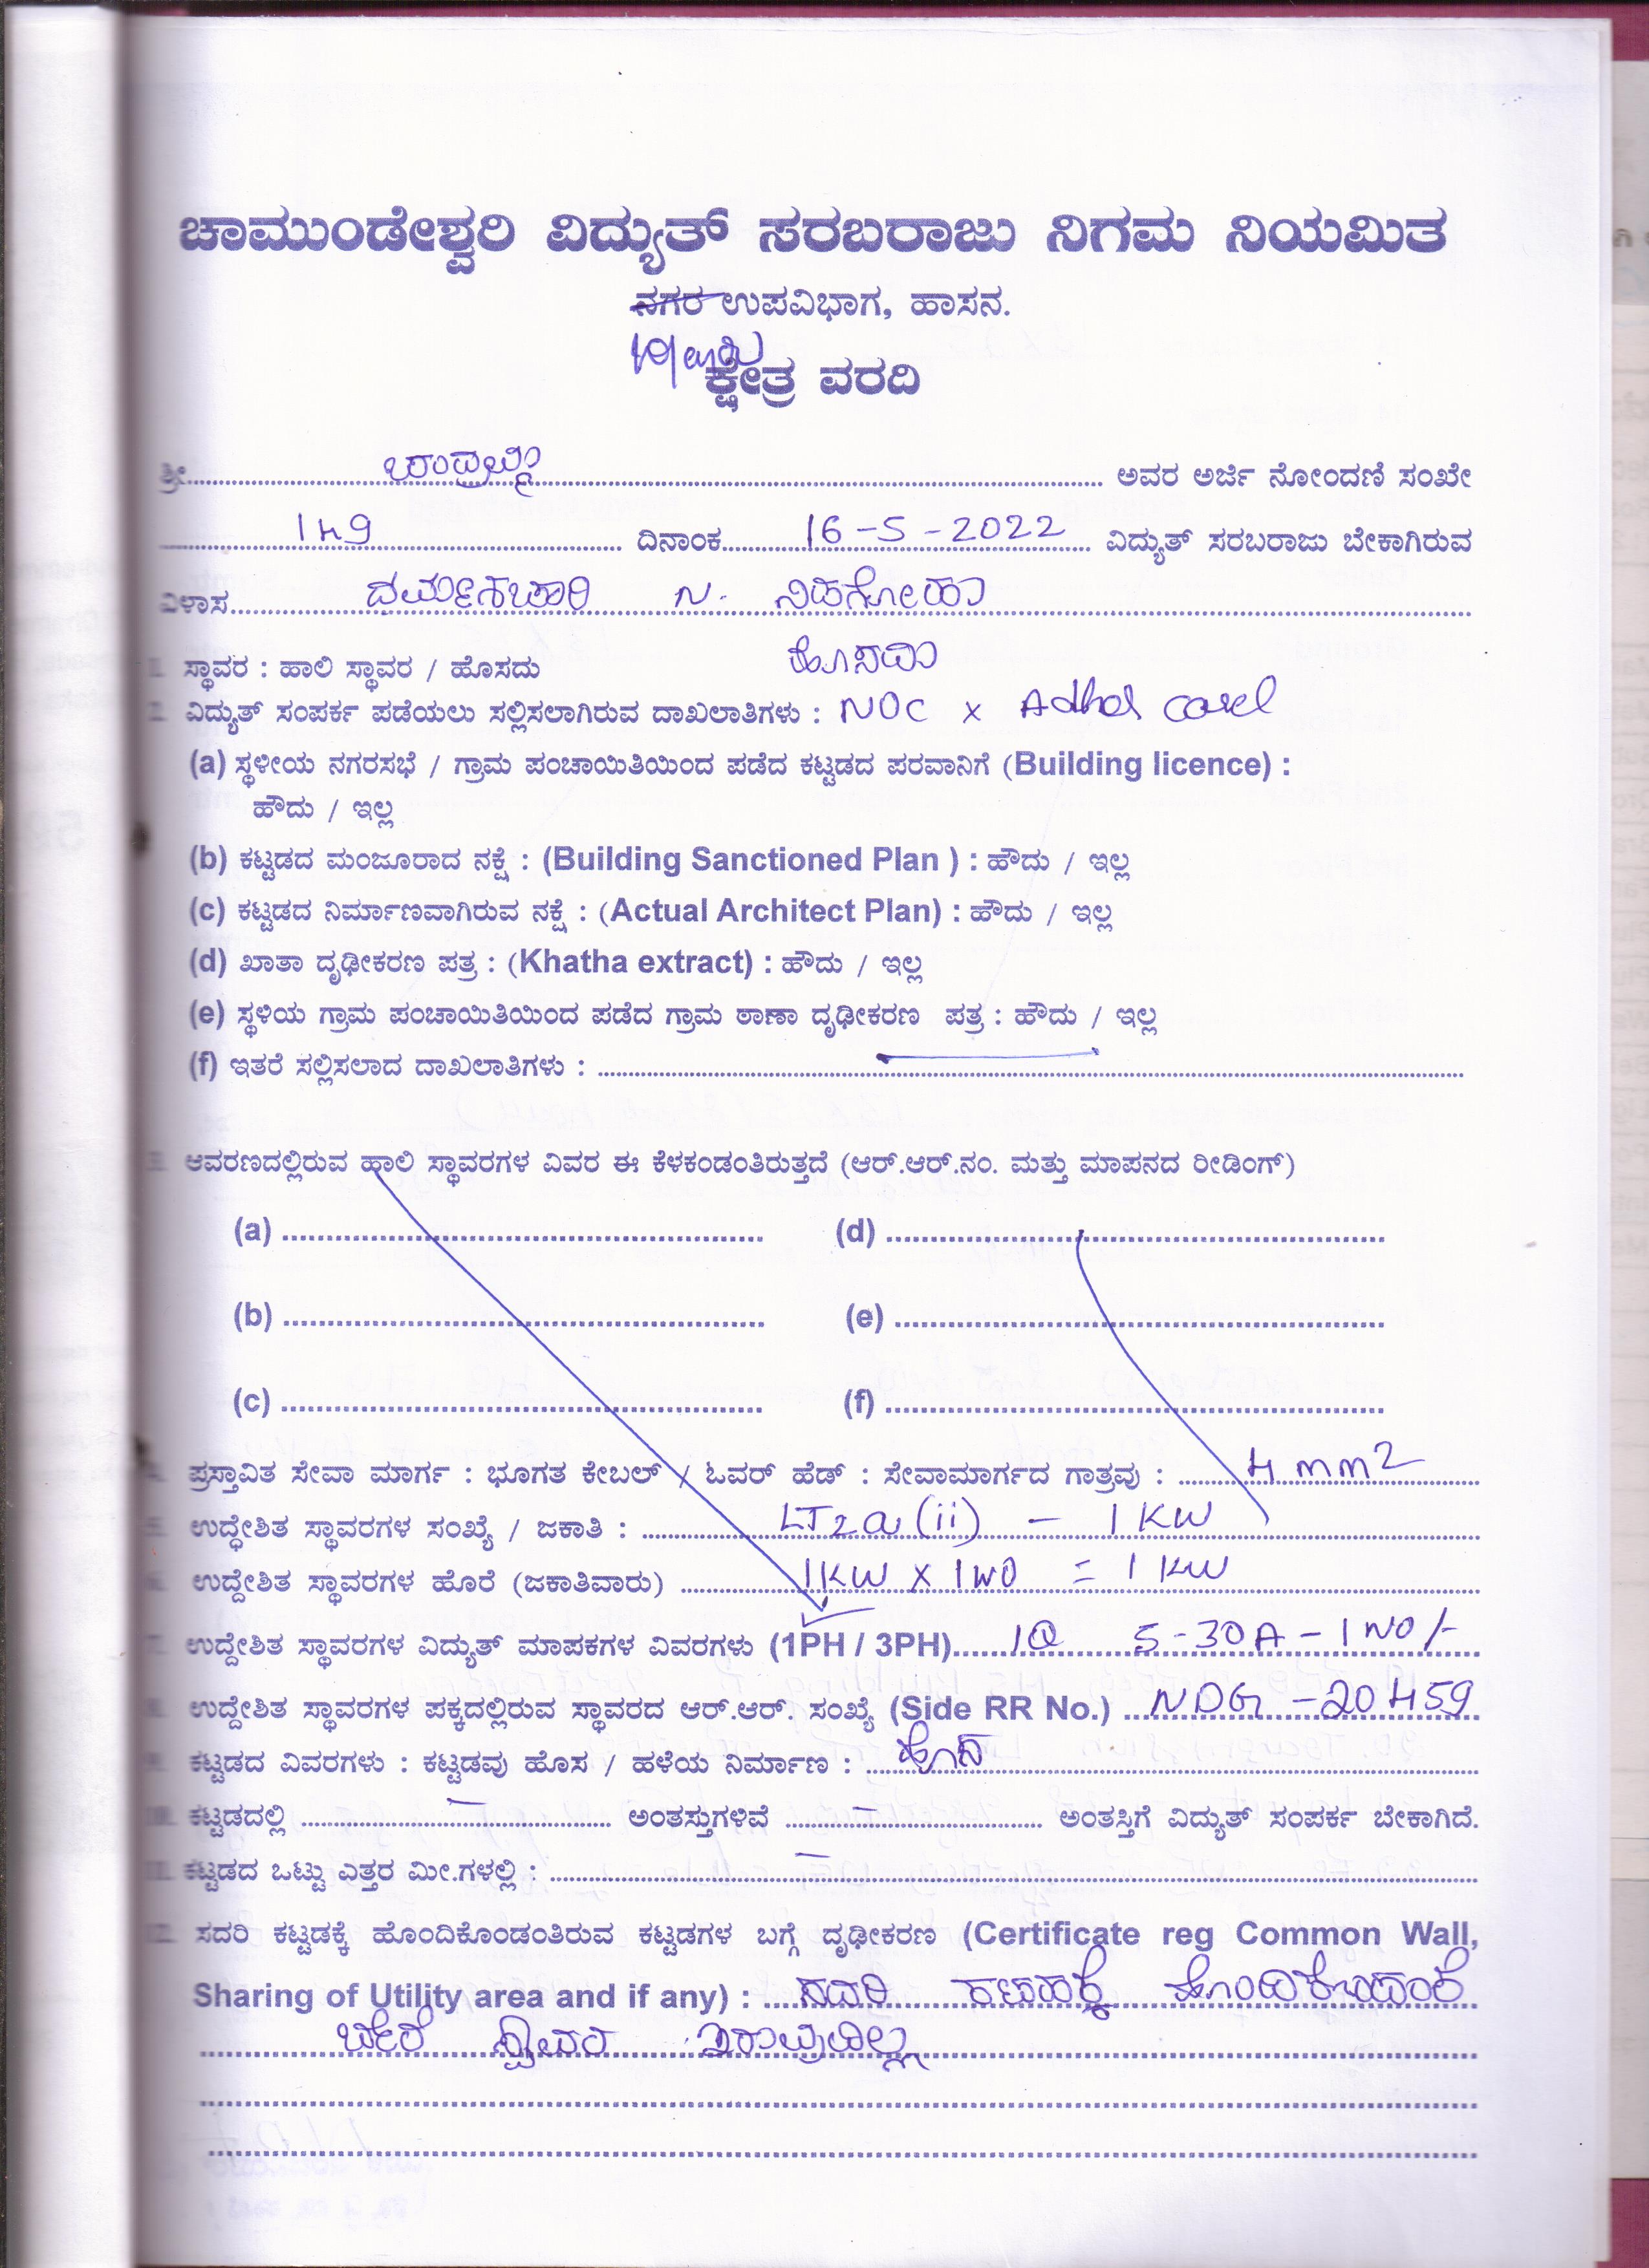 ಚಾಮುಂಡೇಶ್ವರಿ ವಿದ್ಯುತ್ ಸರಬರಾಜು ನಿಗಮ ನಿಯಮಿತ
ನಗರ ಉಪವಿಭಾಗ, ಹಾಸನ.
ಕ್ಷೇತ್ರ ವರದಿ
ಶ್ರೀ........ ಅವರ ಅರ್ಜಿ ನೋಂದಣಿ ಸಂಖೇ
149 ದಿನಾಂಕ 16-5-2022 ವಿದ್ಯುತ್ ಸರಬರಾಜು ಬೇಕಾಗಿರುವ
ವಿಳಾಸ
1. ಸ್ಥಾವರ : ಹಾಲಿ ಸ್ಥಾವರ / ಹೊಸದು ಹೊಸದು
2. ವಿದ್ಯುತ್ ಸಂಪರ್ಕ ಪಡೆಯಲು ಸಲ್ಲಿಸಲಾಗಿರುವ ದಾಖಲಾತಿಗಳು : NOC x
(a) ಸ್ಥಳೀಯ ನಗರಸಭೆ / ಗ್ರಾಮ ಪಂಚಾಯಿತಿಯಿಂದ ಪಡೆದ ಕಟ್ಟಡದ ಪರವಾನಿಗೆ (Building licence) :
ಹೌದು / ಇಲ್ಲ
(b) ಕಟ್ಟಡದ ಮಂಜೂರಾದ ನಕ್ಷೆ : (Building Sanctioned Plan ) : ಹೌದು / ಇಲ್ಲ
(c) ಕಟ್ಟಡದ ನಿರ್ಮಾಣವಾಗಿರುವ ನಕ್ಷೆ : (Actual Architect Plan) : ಹೌದು / ಇಲ್ಲ
(d) ಖಾತಾ ದೃಢೀಕರಣ ಪತ್ರ : (Khatha extract) : ಹೌದು / ಇಲ್ಲ
(e) ಸ್ಥಳಿಯ ಗ್ರಾಮ ಪಂಚಾಯಿತಿಯಿಂದ ಪಡೆದ ಗ್ರಾಮ ಠಾಣಾ ದೃಢೀಕರಣ ಪತ್ರ : ಹೌದು / ಇಲ್ಲ
(f) ಇತರೆ ಸಲ್ಲಿಸಲಾದ ದಾಖಲಾತಿಗಳು :
3. ಆವರಣದಲ್ಲಿರುವ ಹಾಲಿ ಸ್ಥಾವರಗಳ ವಿವರ ಈ ಕೆಳಕಂಡಂತಿರುತ್ತದೆ (ಆರ್.ಆರ್.ನಂ. ಮತ್ತು ಮಾಪನದ ರೀಡಿಂಗ್)
(a) (d)
(b) (e)
(c) (f)
4. ಪ್ರಸ್ತಾವಿತ ಸೇವಾ ಮಾರ್ಗ : ಭೂಗತ ಕೇಬಲ್ / ಓವರ್ ಹೆಡ್ : ಸೇವಾಮಾರ್ಗದ ಗಾತ್ರವು : 4 mm2
5. ಉದ್ಧೇಶಿತ ಸ್ಥಾವರಗಳ ಸಂಖ್ಯೆ / ಜಕಾತಿ : LT2a (ii) - 1 KW
6. ಉದ್ದೇಶಿತ ಸ್ಥಾವರಗಳ ಹೊರೆ (ಜಕಾತಿವಾರು) 1KW X 1NO = 1 KW
7. ಉದ್ದೇಶಿತ ಸ್ಥಾವರಗಳ ವಿದ್ಯುತ್ ಮಾಪಕಗಳ ವಿವರಗಳು (1PH / 3PH) 5-30A-1NO/-
8. ಉದ್ದೇಶಿತ ಸ್ಥಾವರಗಳ ಪಕ್ಕದಲ್ಲಿರುವ ಸ್ಥಾವರದ ಆರ್.ಆರ್. ಸಂಖ್ಯೆ (Side RR No.) NDG-20459
9. ಕಟ್ಟಡದ ವಿವರಗಳು : ಕಟ್ಟಡವು ಹೊಸ / ಹಳೆಯ ನಿರ್ಮಾಣ : ಹೊಸ
10. ಕಟ್ಟಡದಲ್ಲಿ - ಅಂತಸ್ತುಗಳಿವೆ - ಅಂತಸ್ತಿಗೆ ವಿದ್ಯುತ್ ಸಂಪರ್ಕ ಬೇಕಾಗಿದೆ.
11. ಕಟ್ಟಡದ ಒಟ್ಟು ಎತ್ತರ ಮೀ.ಗಳಲ್ಲಿ : -
12. ಸದರಿ ಕಟ್ಟಡಕ್ಕೆ ಹೊಂದಿಕೊಂಡಂತಿರುವ ಕಟ್ಟಡಗಳ ಬಗ್ಗೆ ದೃಢೀಕರಣ (Certificate reg Common Wall,
Sharing of Utility area and if any) : ಸದರಿ
ಬೇರೆ ಸ್ಥಾವರ ಇರುವುದಿಲ್ಲ